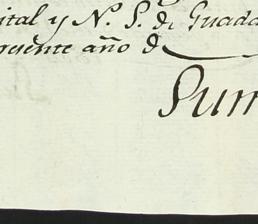 ital y N.ª S. de Guada
presente año de
Sum